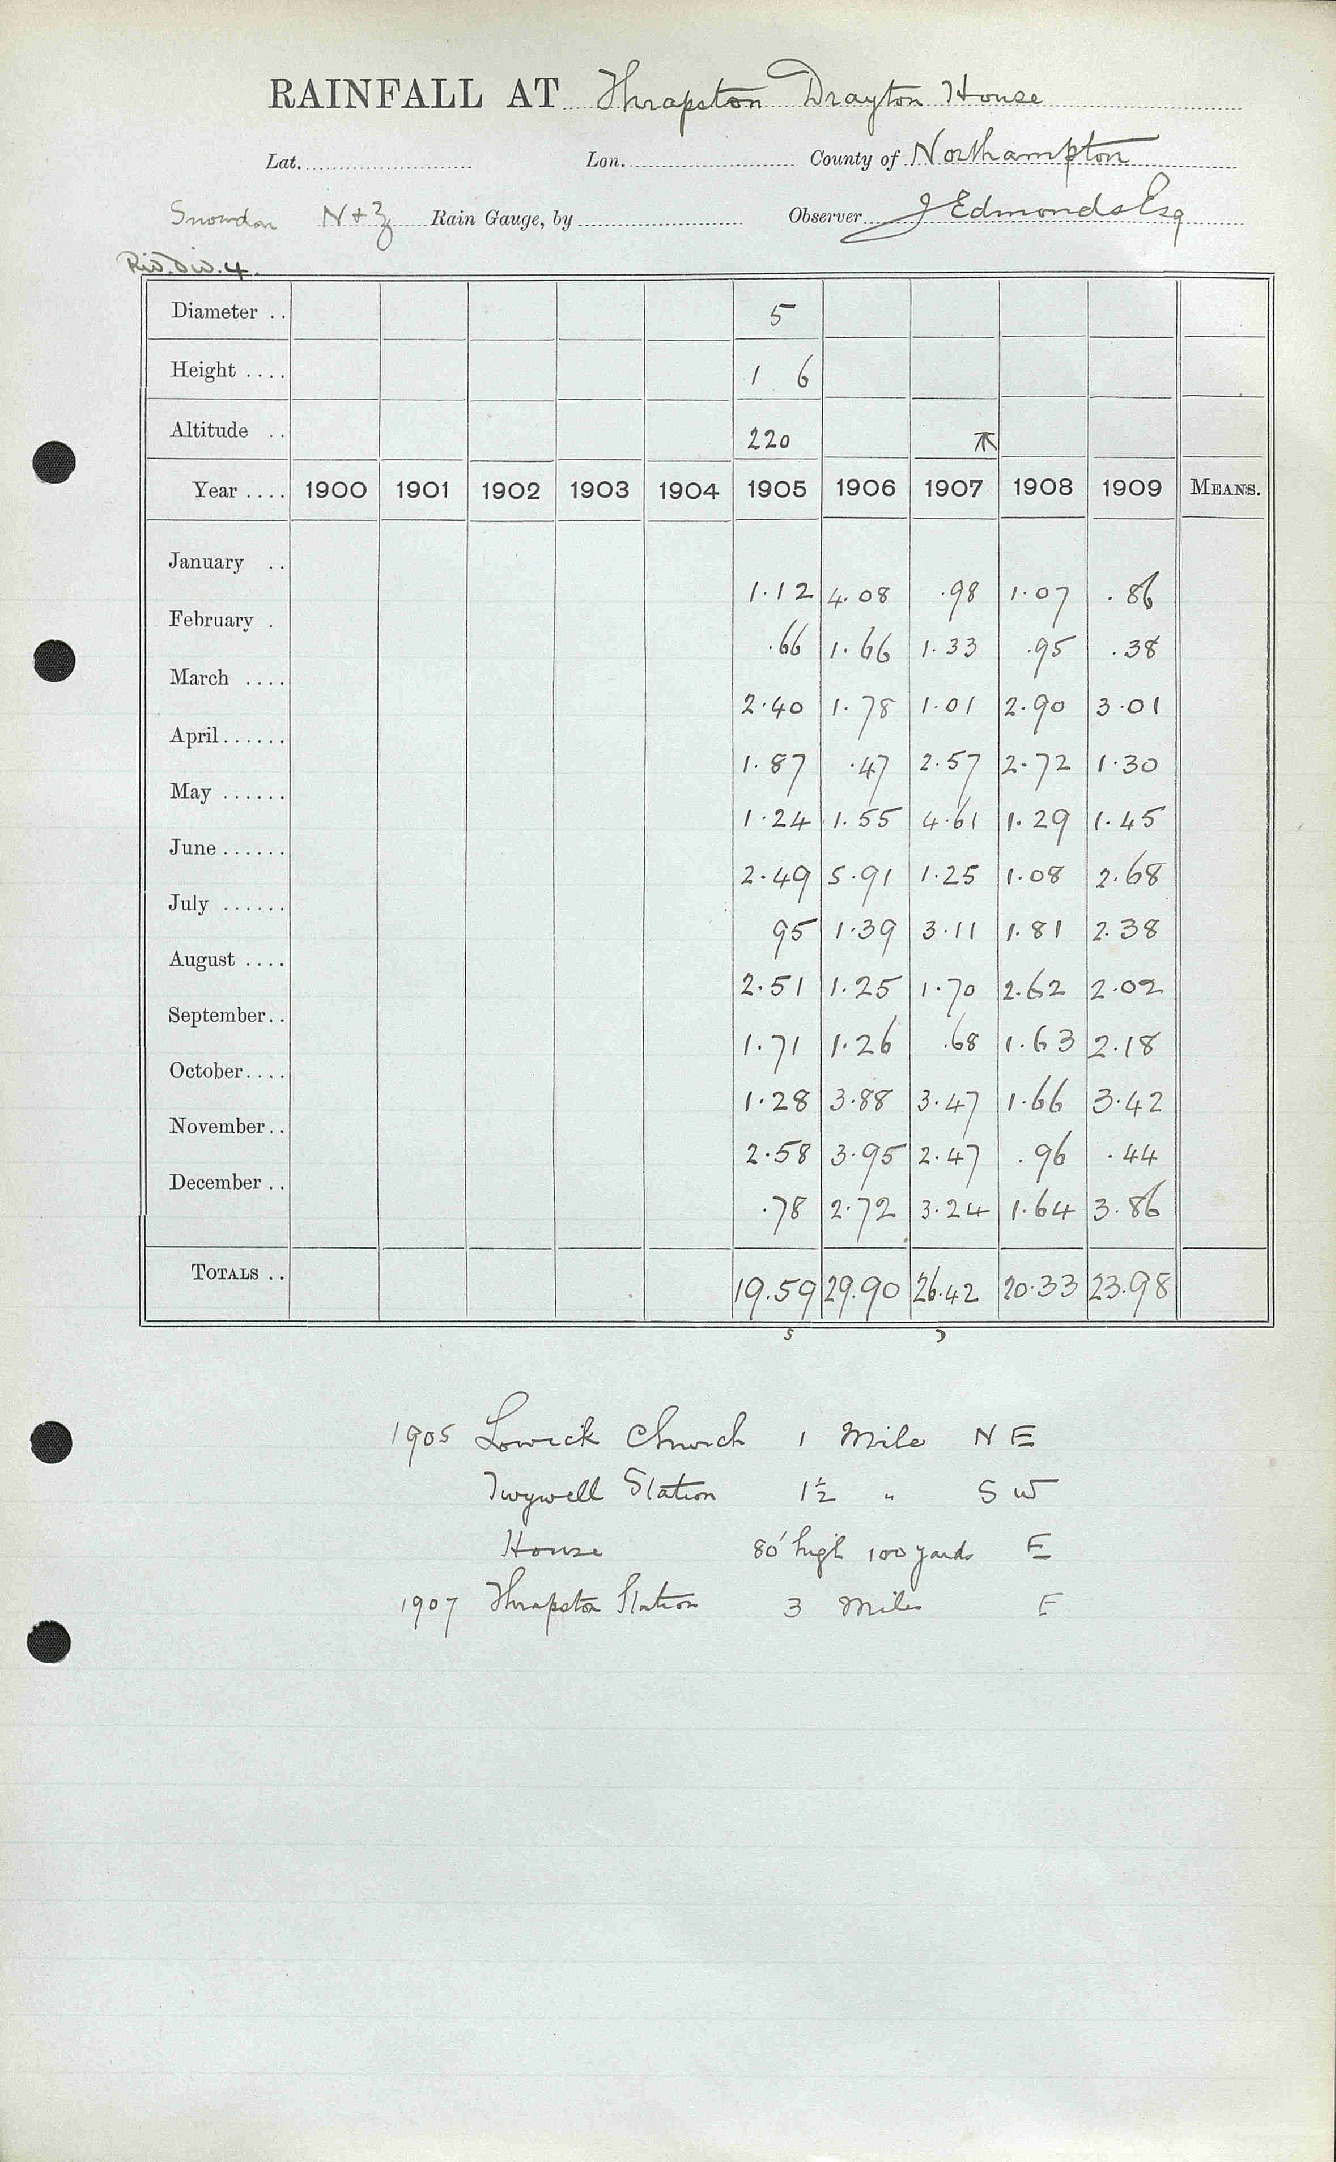 RAINFALL AT Thrapston Drayton House
Lat. Lon. County of Northampton
Snowdon N+Z Rain Gauge, by Observer J Edmonds Esq
Riv. Div. 4.
Diameter .. 5
Height .... 1 6
Altitude .. 220
Year .... 1900 1901 1902 1903 1904 1905 1906 1907 1908 1909 MEANS.
January .. 1.12 4.08 .98 1.07 .86
February . .66 1.66 1.33 .95 .38
March .... 2.40 1.78 1.01 2.90 3.01
April...... 1.87 .47 2.57 2.72 1.30
May ...... 1.24 1.55 4.61 1.29 1.45
June...... 2.49 5.91 1.25 1.08 2.68
July ...... 95 1.39 3.11 1.81 2.38
August .... 2.51 1.25 1.70 2.62 2.02
September.. 1.71 1.26 .68 1.63 2.18
October.... 1.28 3.88 3.47 1.66 3.42
November.. 2.58 3.95 2.47 .96 .44
December .. .78 2.72 3.24 1.64 3.86
TOTALS .. 19.59 29.90 26.42 20.33 23.98
5 7
1905 Lowick Church 1 Mile N E
Twywell Station 1½ " S W
House 80' high 100 yards E
1907 Thrapston Station 3 Miles E